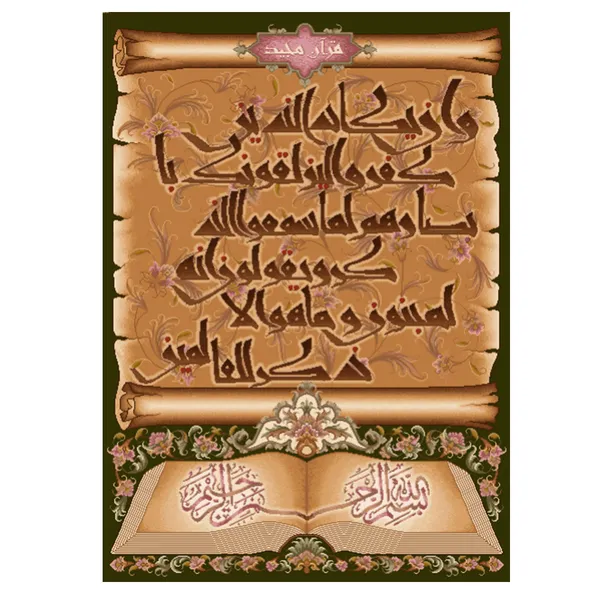 قرآن مجید
وان یکاد الذین
کفروا لیزلقونک با
بصارهم لما سمعوا الذ
کر ویقولون انه
لمجنون و ما هو الا
ذکر للعالمین
بسم الله الرحمن الرحیم